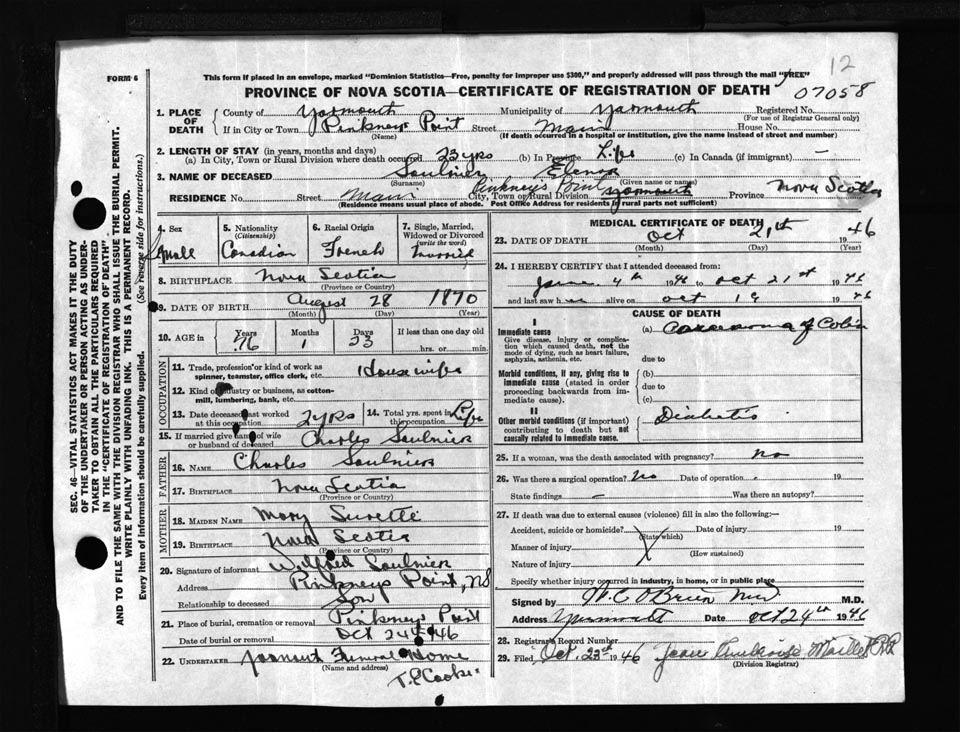 12
FORM 6
This form if placed in an envelope, marked "Dominion Statistics—Free, penalty for improper use $300," and properly addressed will pass through the mail "FREE"
PROVINCE OF NOVA SCOTIA—CERTIFICATE OF REGISTRATION OF DEATH 07058
1. PLACE OF DEATH County of Yarmouth Municipality of Yarmouth Registered No.
(For use of Registrar General only)
If in City or Town Pinkneys Point Street Main House No.
(Name) (If death occurred in a hospital or institution, give the name instead of street and number)
2. LENGTH OF STAY (in years, months and days)
(a) In City, Town or Rural Division where death occurred 23 yrs (b) In Province Life (c) In Canada (if immigrant) —
3. NAME OF DECEASED Saulnier
(Surname) (Given name or names)
RESIDENCE No. Street Main City, Town or Rural Division Pinkneys Point Yarmouth Province Nova Scotia
(Residence means usual place of abode. Post Office Address for residents of rural parts not sufficient)
4. Sex
5. Nationality (Citizenship) Canadian
6. Racial Origin French
7. Single, Married, Widowed or Divorced (write the word) Married
8. BIRTHPLACE Nova Scotia
(Province or Country)
9. DATE OF BIRTH August 28 1870
(Month) (Day) (Year)
10. AGE in Years 76 Months 1 Days 23 If less than one day old
hrs. or min.
OCCUPATION
11. Trade, profession or kind of work as spinner, teamster, office clerk, etc. Housewife
12. Kind of industry or business, as cotton-mill, lumbering, bank, etc.
13. Date deceased last worked at this occupation 2 yrs 14. Total yrs. spent in this occupation Life
15. If married give name of wife or husband of deceased Charles Saulnier
FATHER
16. NAME Charles Saulnier
17. BIRTHPLACE Nova Scotia
(Province or Country)
MOTHER
18. MAIDEN NAME Mary Surette
19. BIRTHPLACE Nova Scotia
(Province or Country)
20. Signature of informant Wilfred Saulnier
Address Pinkneys Point, NS
Relationship to deceased Son
21. Place of burial, cremation or removal Pinkneys Point
Date of burial or removal Oct 24th 46
22. UNDERTAKER Funeral Home
(Name and address)
MEDICAL CERTIFICATE OF DEATH
23. DATE OF DEATH Oct 21th 1946
(Month) (Day) (Year)
24. I HEREBY CERTIFY that I attended deceased from:
4th 1946 to Oct 21st 1946
and last saw h alive on Oct 19 1946
CAUSE OF DEATH
I
Immediate cause (a) Carcinoma of
Give disease, injury or complication which caused death, not the mode of dying, such as heart failure, asphyxia, asthenia, etc. due to
Morbid conditions, if any, giving rise to immediate cause (stated in order proceeding backwards from immediate cause). (b)
due to
(c)
II
Other morbid conditions (if important) contributing to death but not causally related to immediate cause. Diabetis
25. If a woman, was the death associated with pregnancy? no
26. Was there a surgical operation? No Date of operation 19
State findings — Was there an autopsy?
27. If death was due to external causes (violence) fill in also the following:—
Accident, suicide or homicide? Date of injury 19
(State which)
Manner of injury
(How sustained)
Nature of injury
Specify whether injury occurred in industry, in home, or in public place
Signed by O'Brien M.D.
Address Yarmouth Date Oct 24th 1946
28. Registrar's Record Number
29. Filed Oct. 23rd 1946 Maillet
(Division Registrar)
SEC. 46—VITAL STATISTICS ACT MAKES IT THE DUTY
OF THE UNDERTAKER OR PERSON ACTING AS UNDERTAKER TO OBTAIN ALL THE PARTICULARS REQUIRED
IN THE "CERTIFICATE OF REGISTRATION OF DEATH"
AND TO FILE THE SAME WITH THE DIVISION REGISTRAR WHO SHALL ISSUE THE BURIAL PERMIT.
WRITE PLAINLY WITH UNFADING INK. THIS IS A PERMANENT RECORD.
Every item of Information should be carefully supplied. (See reverse side for instructions.)